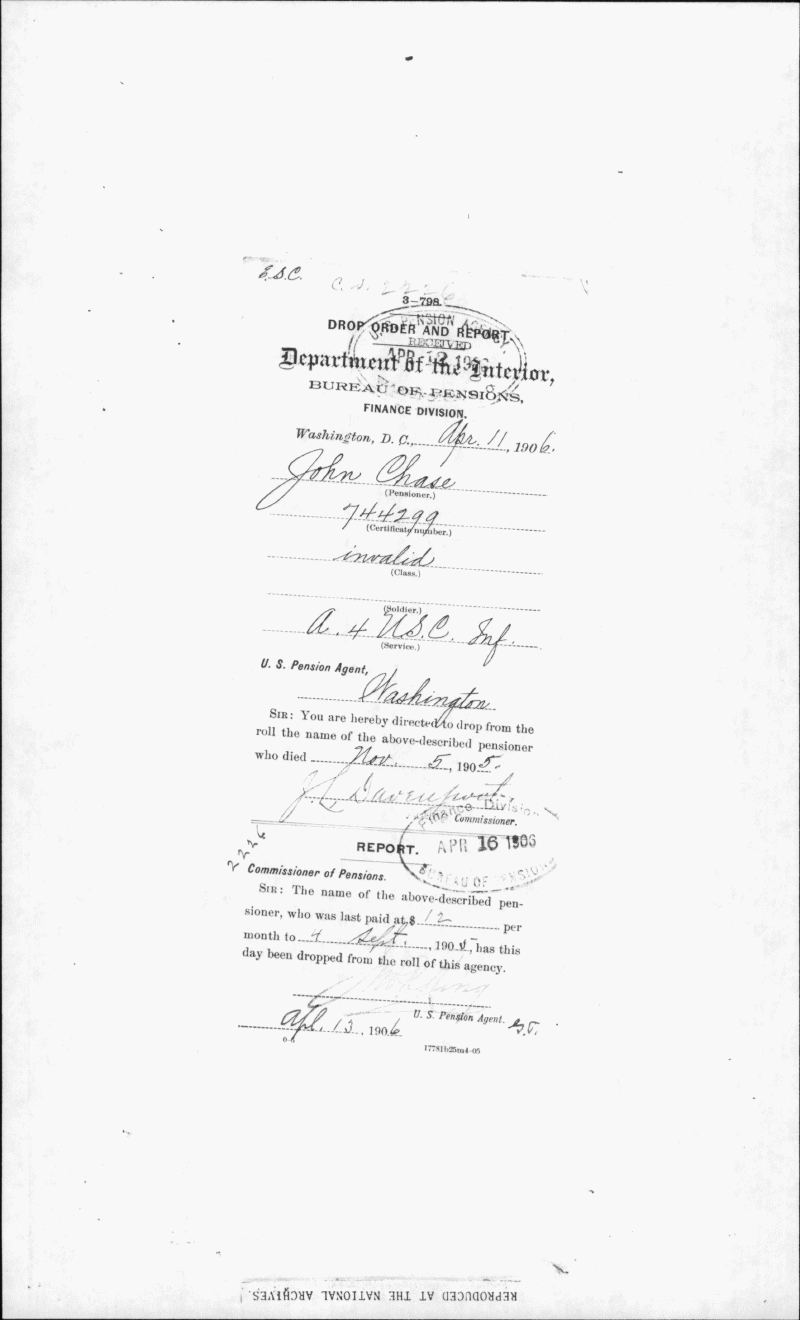 E.S.C.
C.S. 2226
3—798.
DROP ORDER AND REPORT.
U.S. PENSION AGENCY
RECEIVED
APR 12 1906
Department of the Interior,
BUREAU OF PENSIONS,
FINANCE DIVISION.
Washington, D. C., Apr. 11, 1906.
John Chase
(Pensioner.)
744299
(Certificate number.)
invalid
(Class.)
(Soldier.)
A. 4 U.S.C. Inf.
(Service.)
U. S. Pension Agent,
Washington
SIR: You are hereby directed to drop from the
roll the name of the above-described pensioner
who died Nov. 5, 1905.
J L Davenport
Commissioner.
Finance Division
APR 16 1906
BUREAU OF PENSIONS
2226
REPORT.
Commissioner of Pensions.
SIR: The name of the above-described pen-
sioner, who was last paid at $ 12 per
month to 4 Sept., 1905, has this
day been dropped from the roll of this agency.
U. S. Pension Agent.
Apl. 13, 1906
17781b25m4-05
REPRODUCED AT THE NATIONAL ARCHIVES.